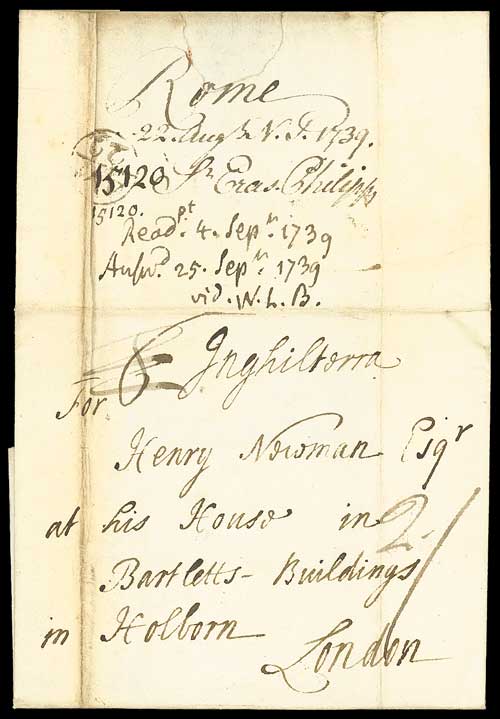 Rome
22. Augst. N.S. 1739.
15120 Sr. Eras. Philipps
15120.
Readpt. 4. Sepr. 1739
Answd. 25. Sepr. 1739
vid. W. L. B.
Inghilterra
For
Henry Newman Esqr
at his House in
Bartletts-Buildings
in Holborn
London